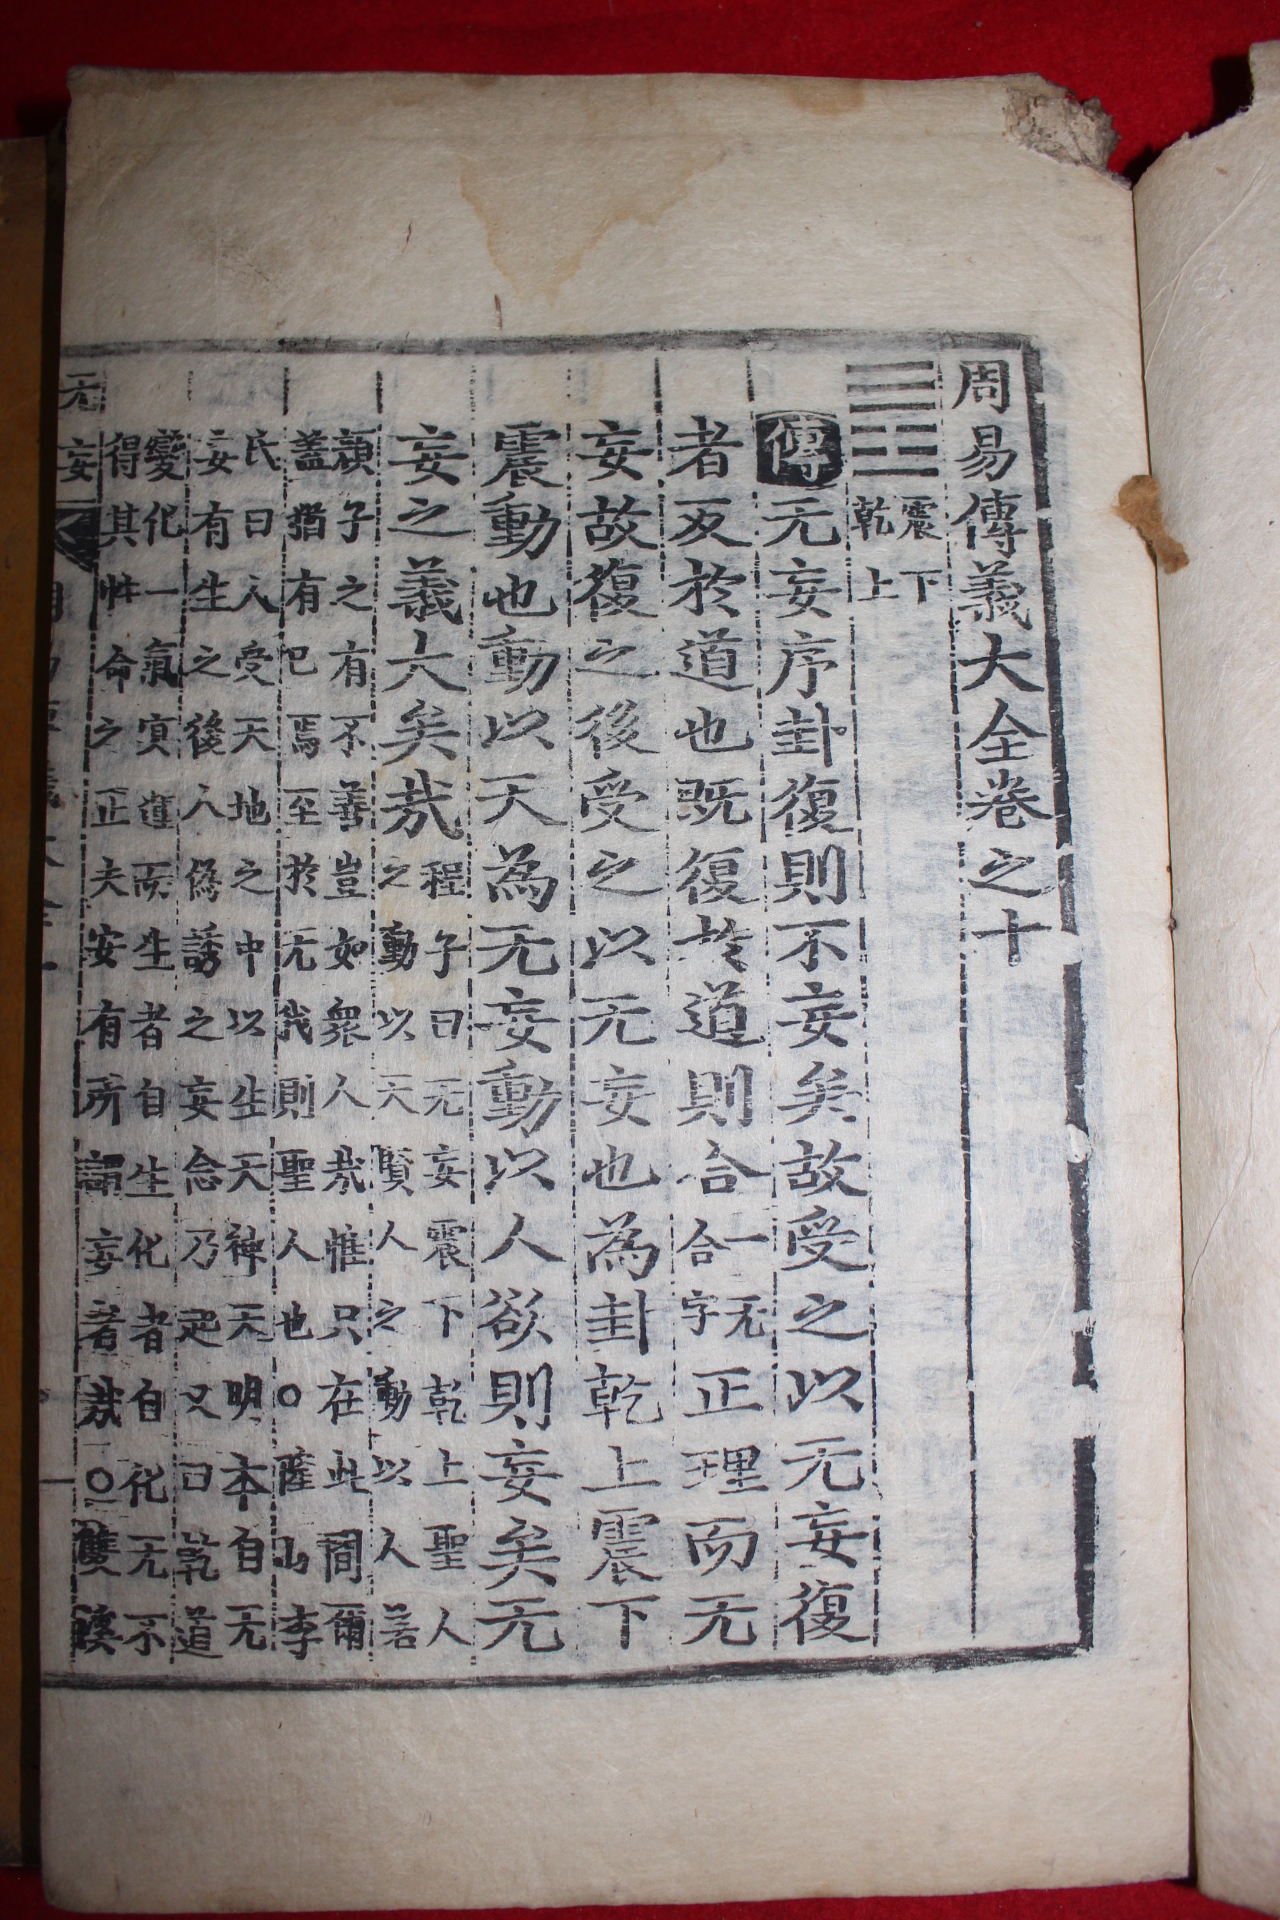 周易傳義大全卷之十
震下
乾上
傳无妄序卦復則不妄矣故受之以无妄復
者反於道也既復於道則合一无合字正理而无
妄故復之後受之以无妄也為卦乾上震下
震動也動以天為无妄動以人欲則妄矣无
妄之義大矣哉
程子曰无妄震下乾上聖人
之動以天賢人之動以人若
顔子之有不善豈如衆人哉惟只在此間爾
蓋猶有已焉至於无我則聖人也○薩山李
氏曰人受天地之中以生天神天明本自无
妄有生之後人偽誘之妄念乃起又曰乾道
變化一氣寘運而生者自生化者自化无不
得其性命之正夫安有所謂妄者哉○雙溪
无妄